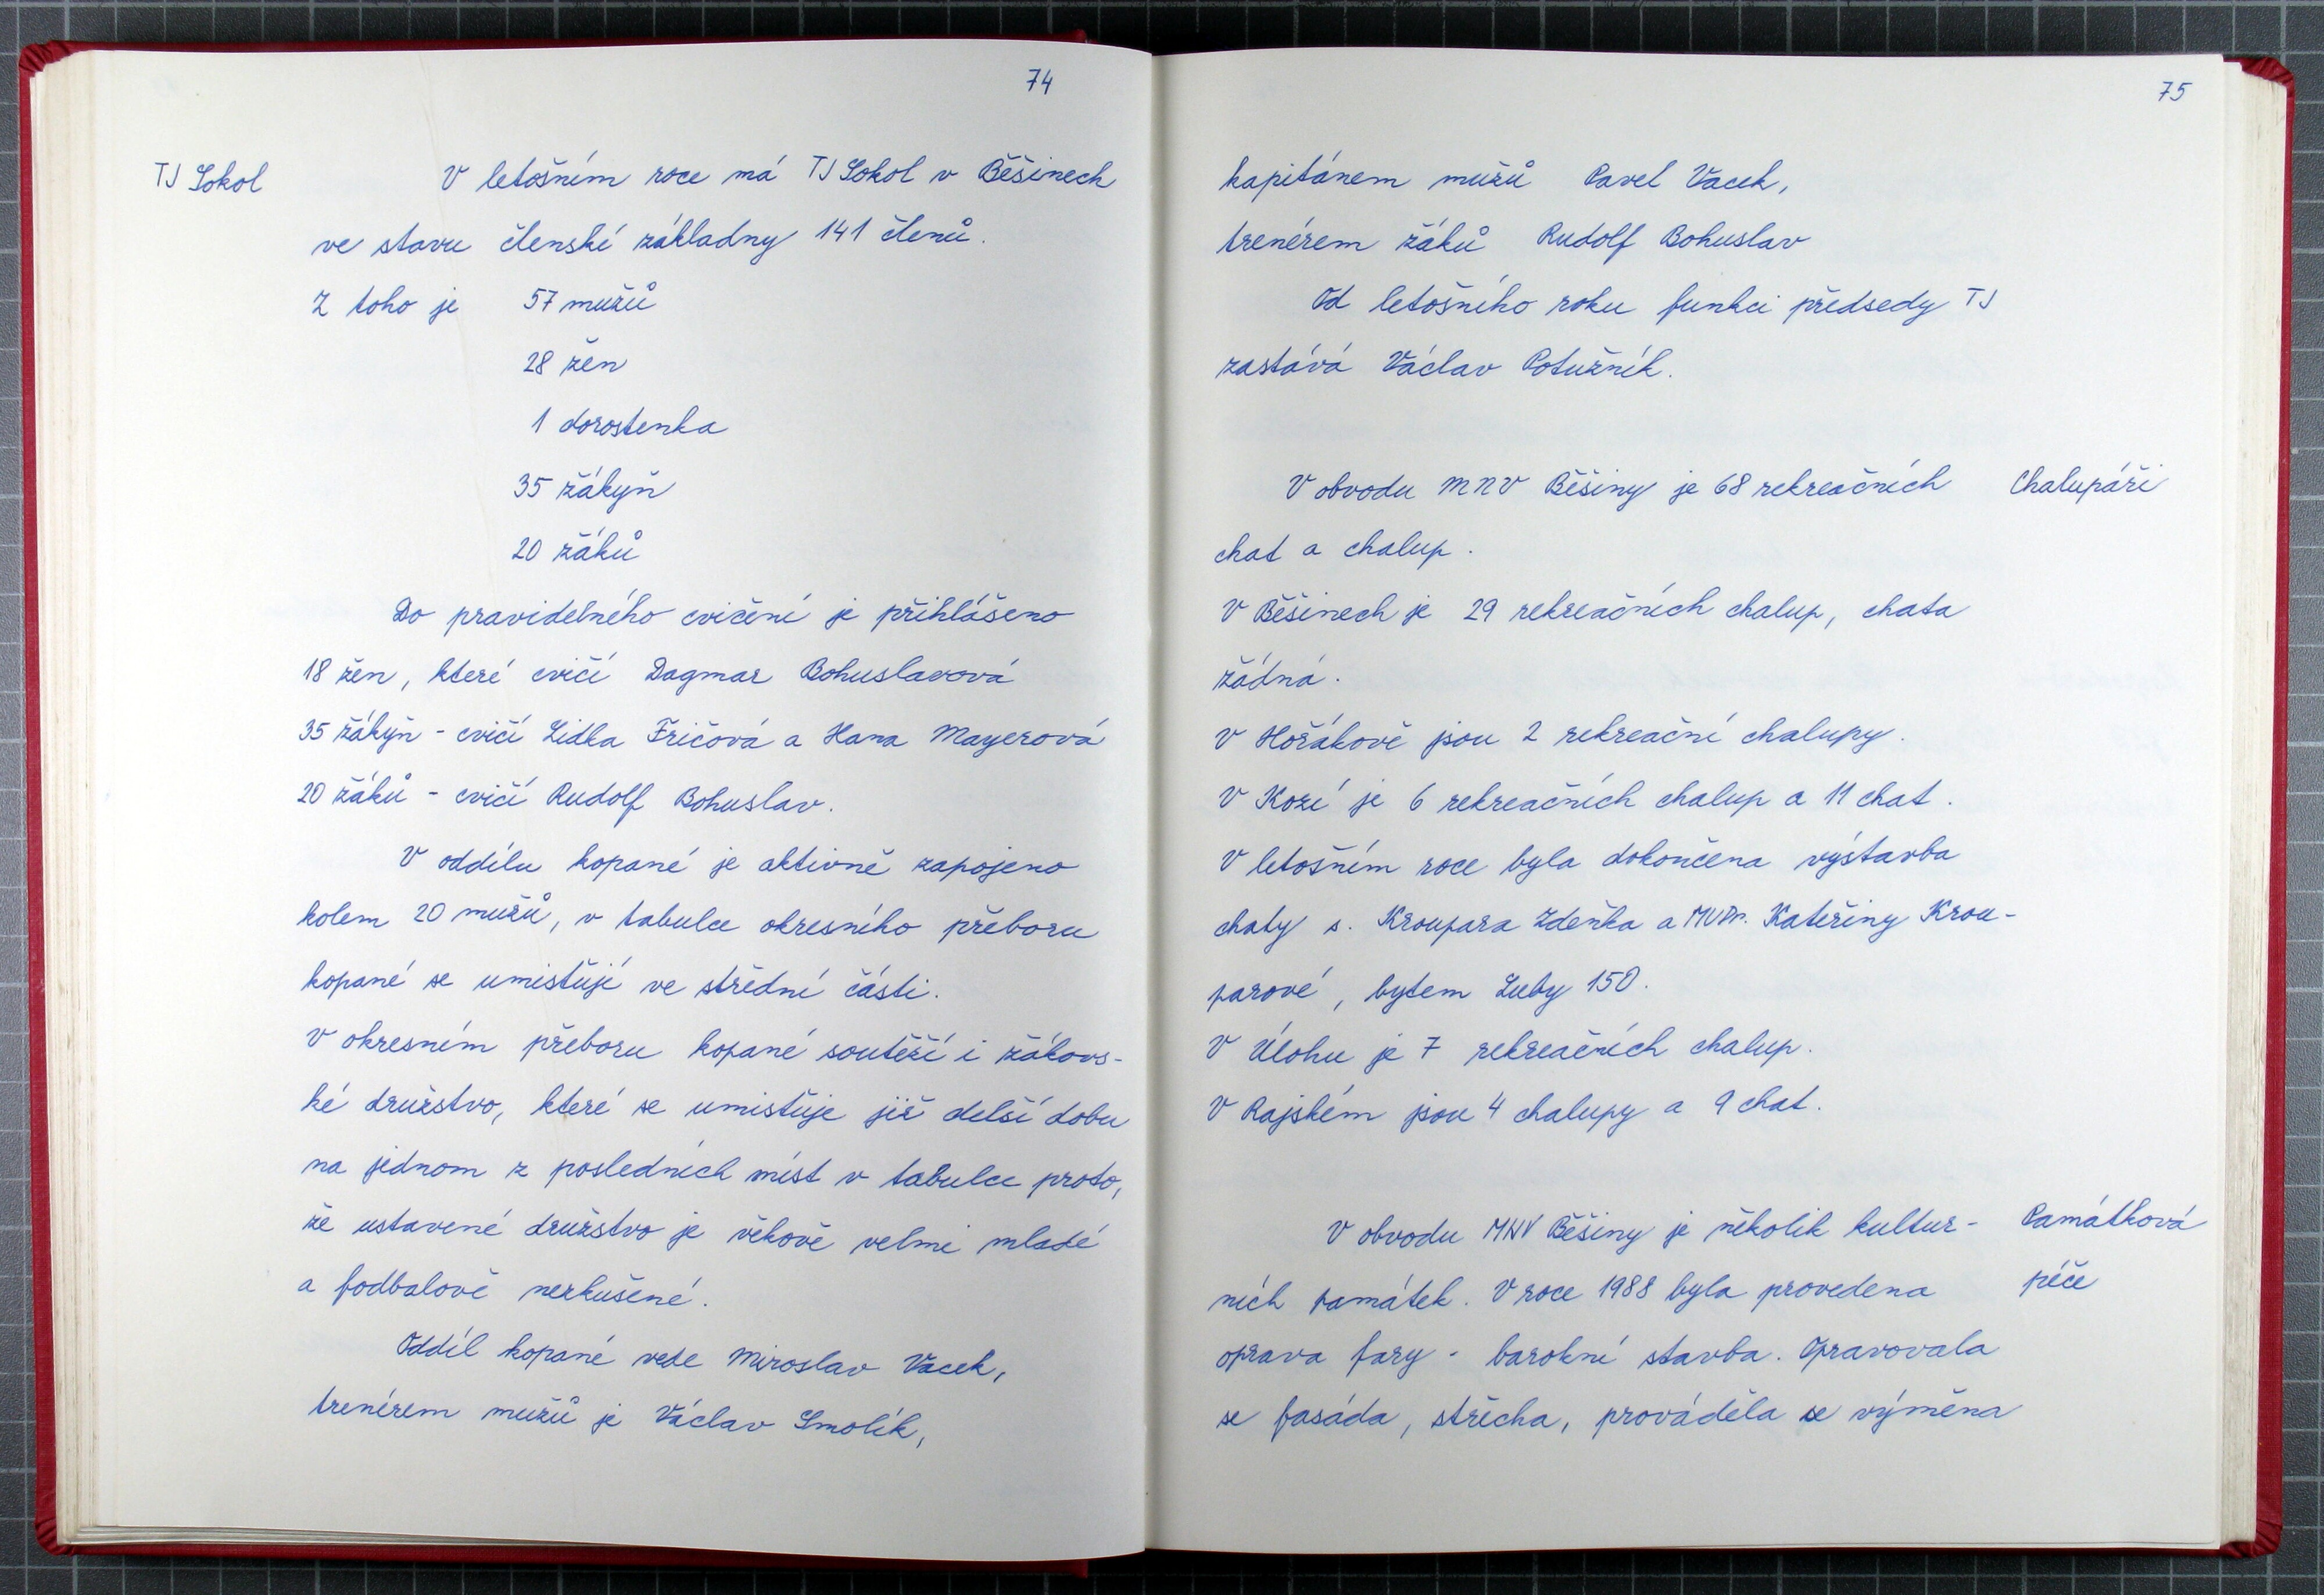 74
TJ Sokol
V letošním roce má TJ Sokol v Běšinech
ve stavu členské základny 141 členů.
Z toho je 57 mužů
28 žen
1 dorostenka
35 žákyň
20 žáků
Do pravidelného cvičení je přihlášeno
18 žen, které cvičí Dagmar Bohuslavová
35 žákyň - cvičí Lidka Fričová a Hana Mayerová
20 žáků - cvičí Rudolf Bohuslav.
V oddílu kopané je aktivně zapojeno
kolem 20 mužů, v tabulce okresního přeboru
kopané se umisťují ve střední části.
V okresním přeboru kopané soutěží i žákovs-
ké družstvo, které se umisťuje již delší dobu
na jednom z posledních míst v tabulce proto,
že ustavené družstvo je věkově velmi mladé
a fodbalově nezkušené.
Oddíl kopané vede Miroslav Vacek,
trenérem mužů je Václav Smolík,
75
kapitánem mužů Pavel Vacek,
trenérem žáků Rudolf Bohuslav
Od letošního roku funkci předsedy TJ
zastává Václav Potužník.
V obvodu MNV Běšiny je 68 rekreačních
Chalupáři
chat a chalup.
V Běšinech je 29 rekreačních chalup, chata
žádná.
V Hořákově jsou 2 rekreační chalupy.
V Kozí je 6 rekreačních chalup a 11 chat.
V letošním roce byla dokončena výstavba
chaty s. Kroupara Zdeňka a MVDr. Kateřiny Krou-
parové, bytem Luby 150.
V Úlohu je 7 rekreačních chalup.
V Rajském jsou 4 chalupy a 9 chat.
V obvodu MNV Běšiny je několik kultur-
Památková
péče
ních památek. V roce 1988 byla provedena
oprava fary - barokní stavba. Opravovala
se fasáda, střecha, prováděla se výměna